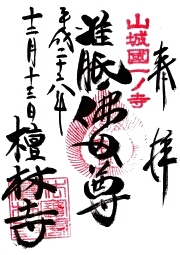 奉拝
山城國一ノ寺
准胝佛母尊
平成二十八年
十二月十三日
檀林寺